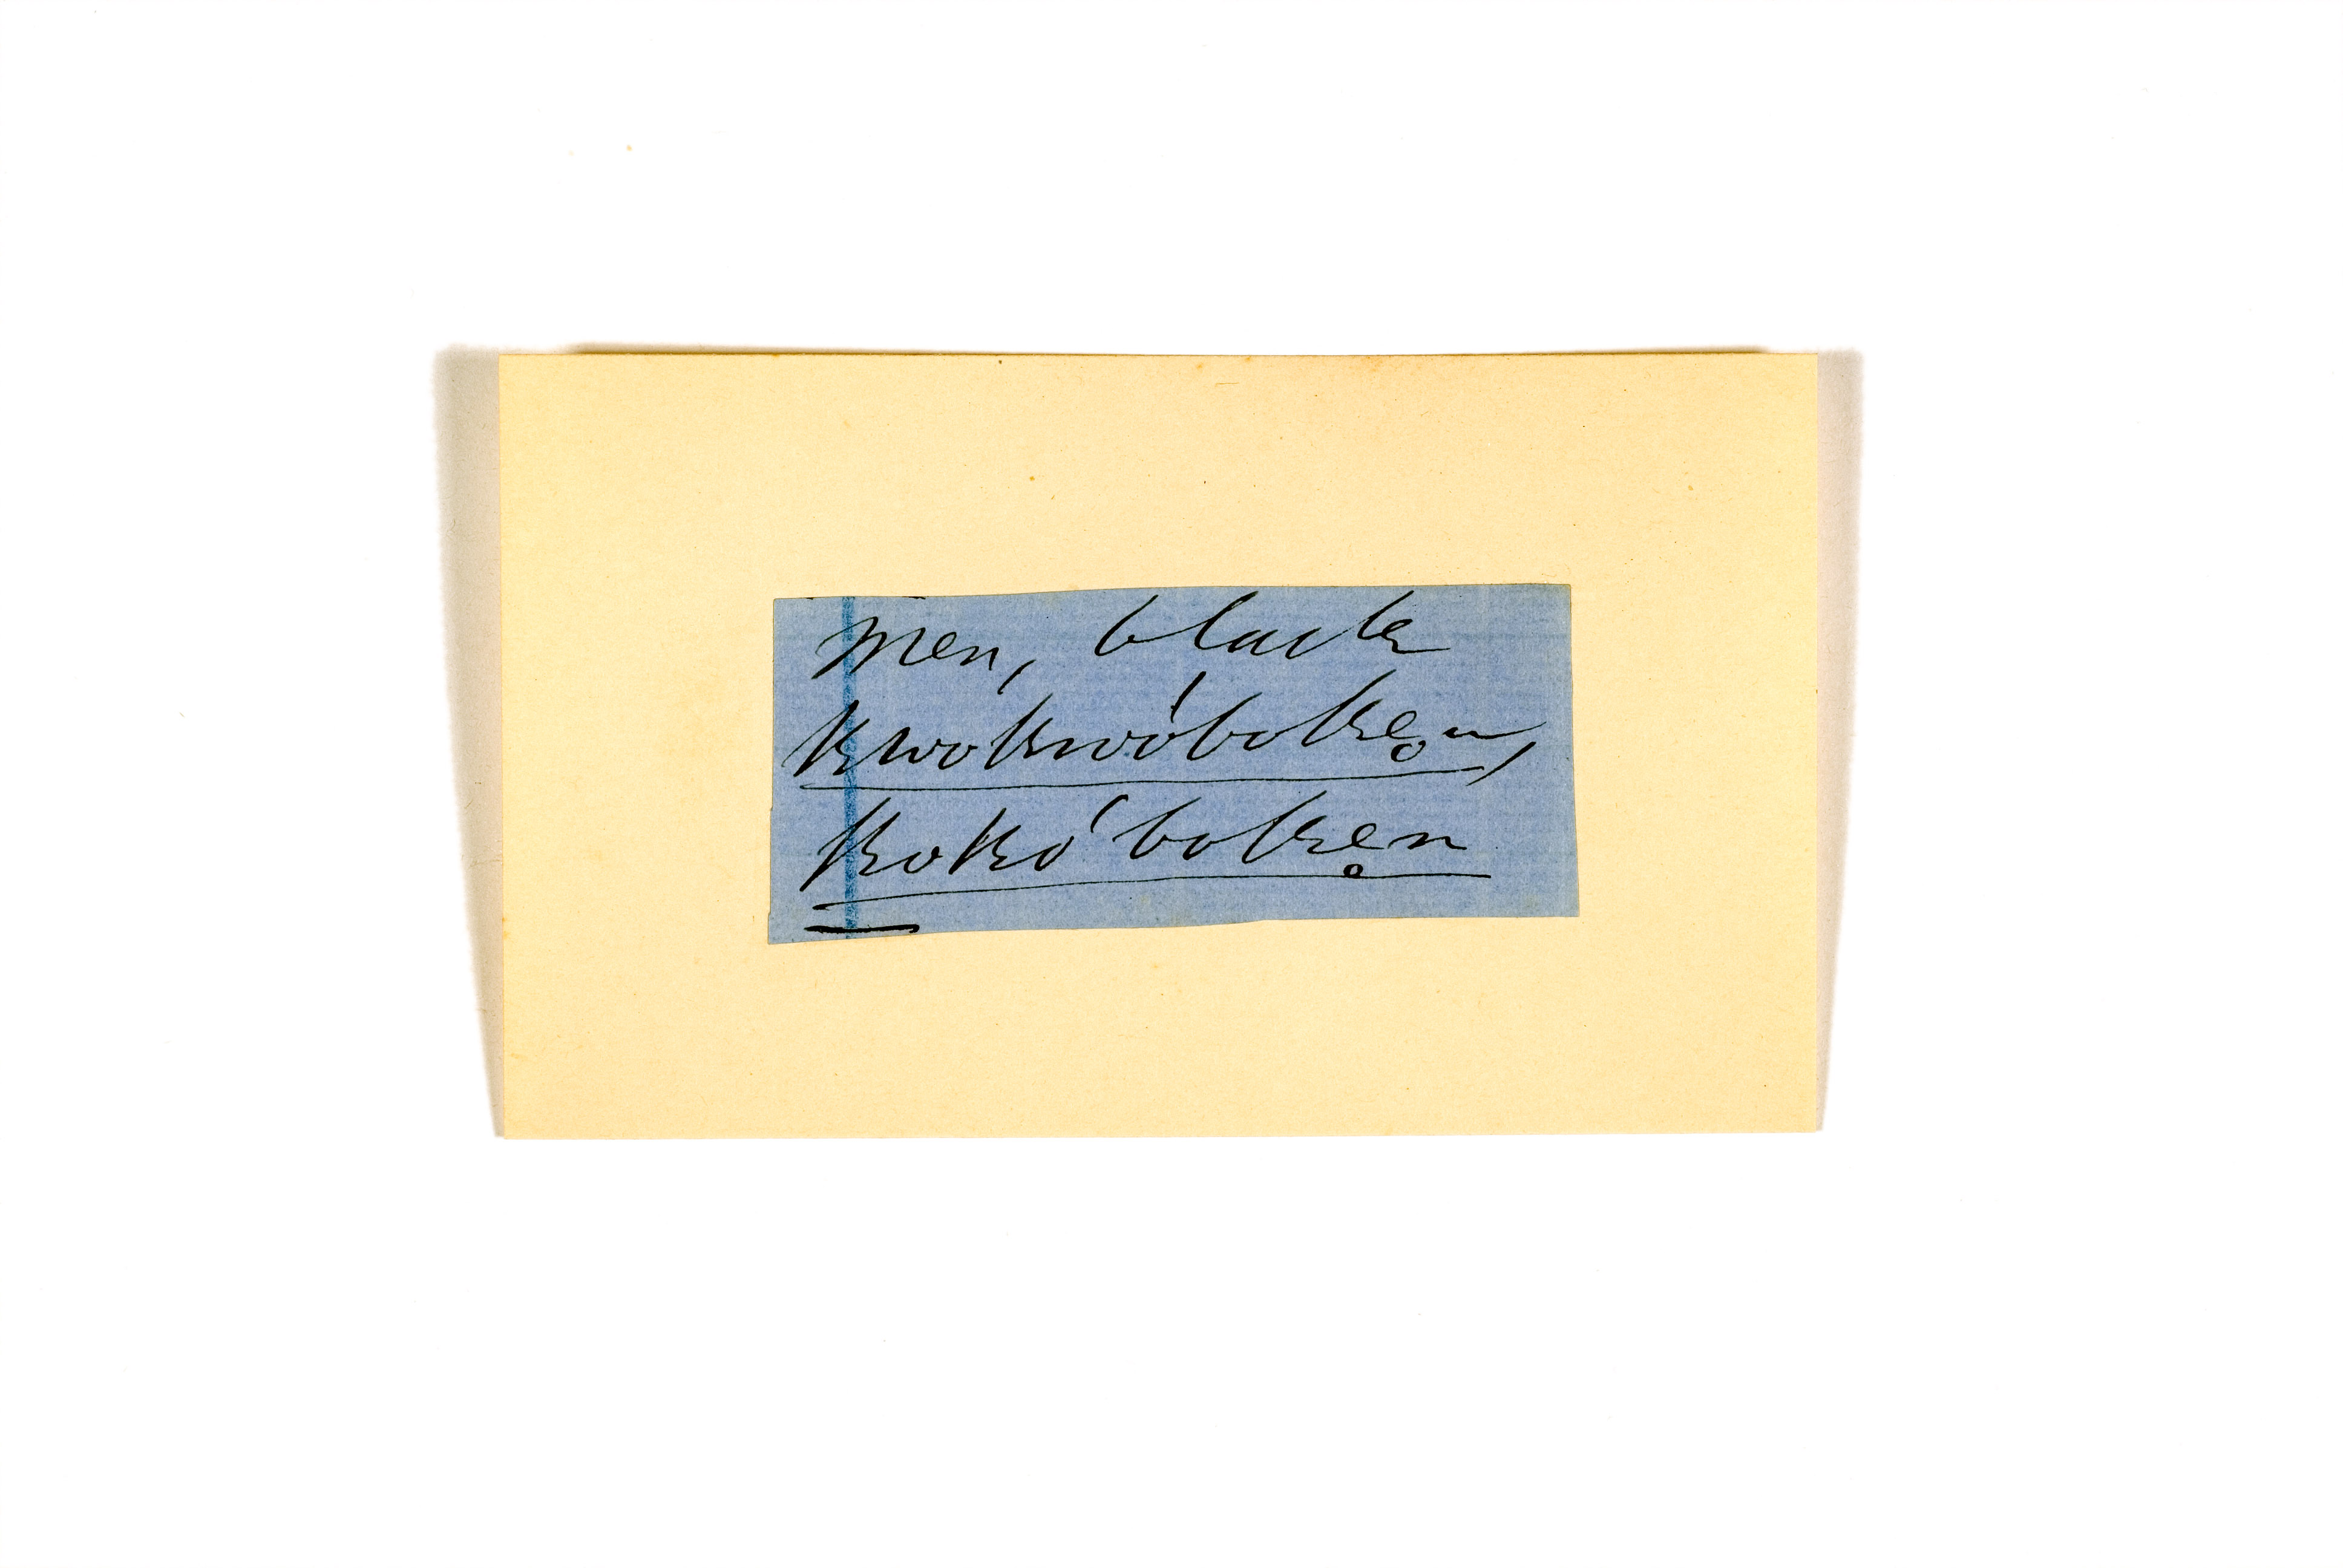 men, black
kwokwóboke̥n,
kokóboke̥n